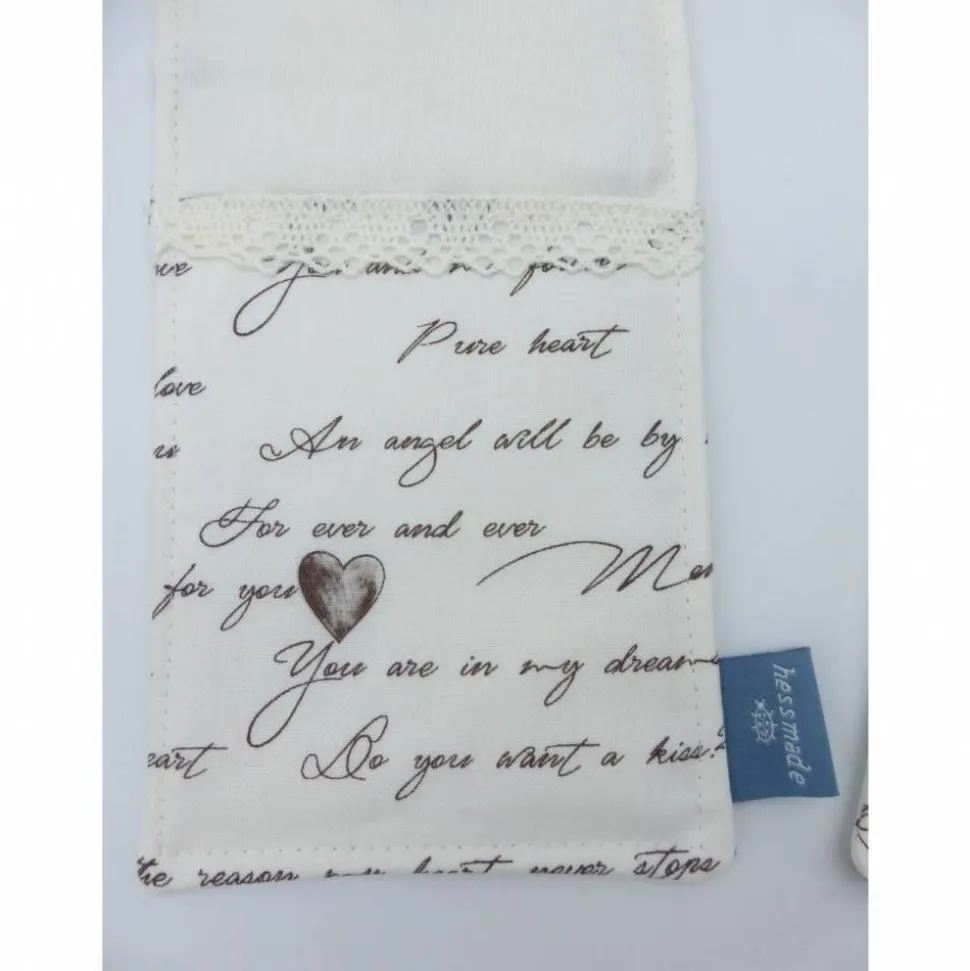 You and me forever
Pure heart
love
An angel will be by
For ever and ever
for you
You are in my dreams
eart Do you want a kiss?
the reason my heart never stops
hessmade